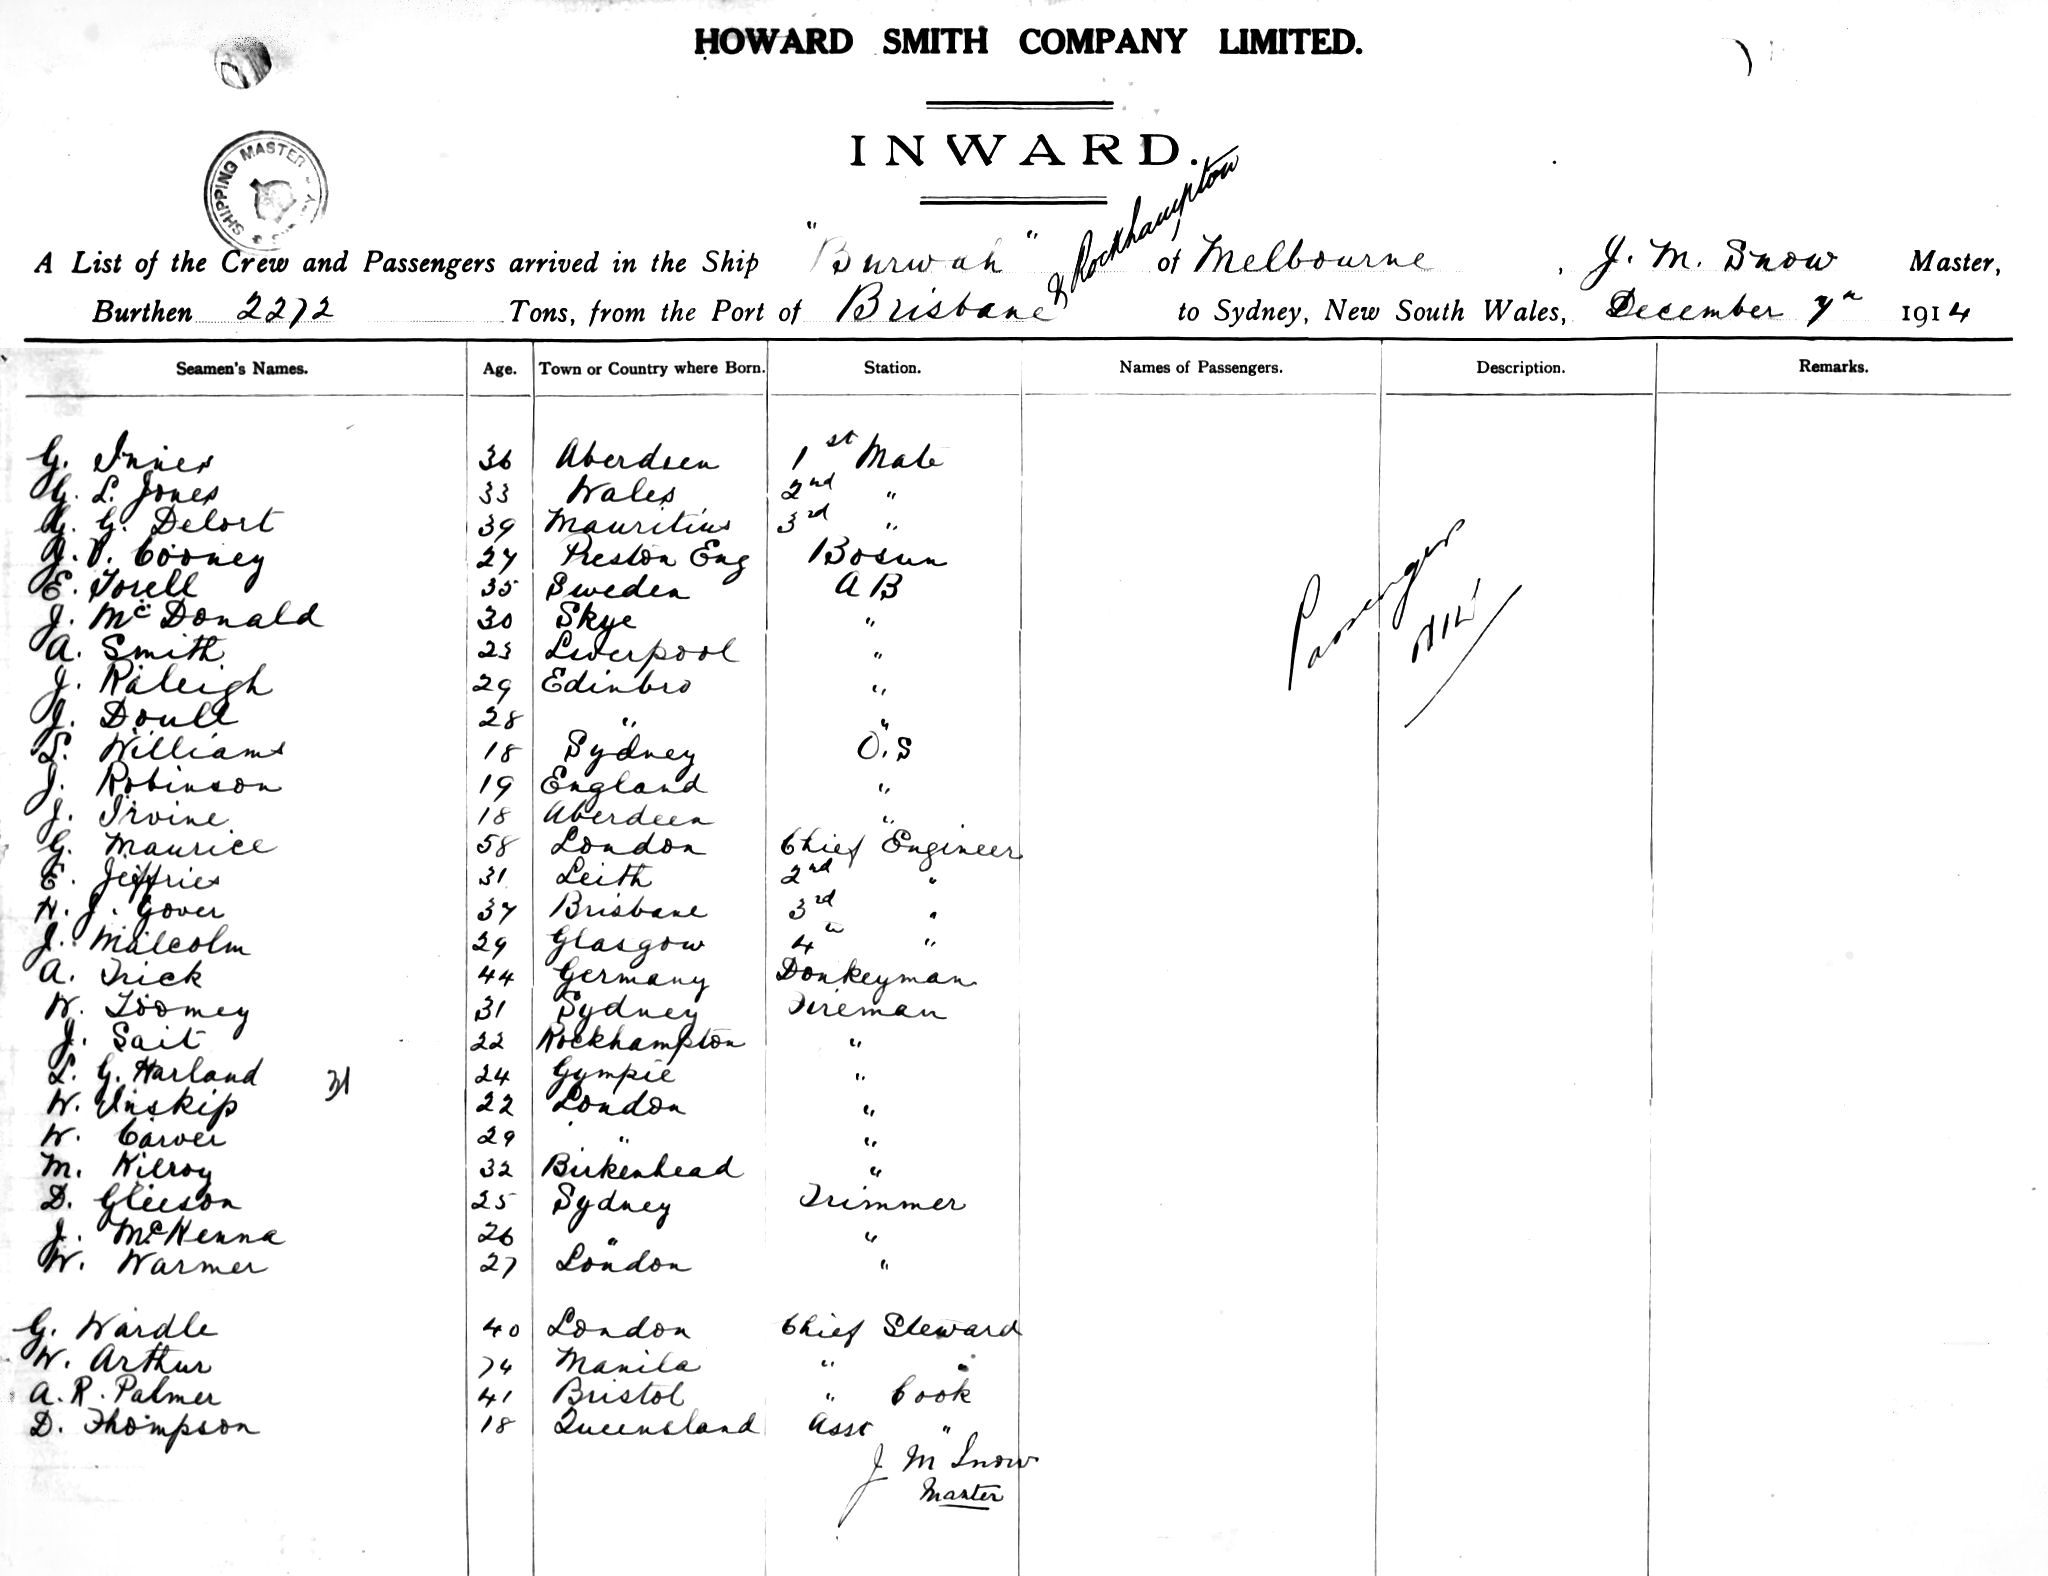 HOWARD SMITH COMPANY LIMITED.
INWARD.
SHIPPING MASTER
A List of the Crew and Passengers arrived in the Ship "Burwah" of Melbourne, J. M. Snow Master,
& Rockhampton
Burthen 2272 Tons, from the Port of Brisbane to Sydney, New South Wales, December 7th 1914
Seamen's Names. Age. Town or Country where Born. Station. Names of Passengers. Description. Remarks.
G. Innes 36 Aberdeen 1st Mate
G. L. Jones 33 Wales 2nd "
G. Delort 39 Mauritius 3rd "
Cooney 27 Preston Eng Bosun
E. Torell 35 Sweden A B
J. McDonald 30 Skye "
A. Smith 23 Liverpool "
J. Raleigh 29 Edinbro "
J. Doull 28 " "
S. Williams 18 Sydney O.S
J. Robinson 19 England "
J. Irvine 18 Aberdeen "
G. Maurice 58 London Chief Engineer
E. Jeffries 31 Leith 2nd "
H. J. Gover 37 Brisbane 3rd "
J. Malcolm 29 Glasgow 4th "
A. Frick 44 Germany Donkeyman
W. Toomey 31 Sydney Fireman
J. Sait 22 Rockhampton "
L. G. Harland 24 Gympie "
31
W. Inskip 22 London "
W. Carver 29 " "
M. Kilroy 32 Birkenhead "
D. Gleeson 25 Sydney Trimmer
J. McKenna 26 " "
W. Warmer 27 London "
G. Wardle 40 London Chief Steward
W. Arthur 74 Manila " "
A. R. Palmer 41 Bristol " Cook
D. Thompson 18 Queensland Asst "
Passengers
Nil
J M Snow
Master